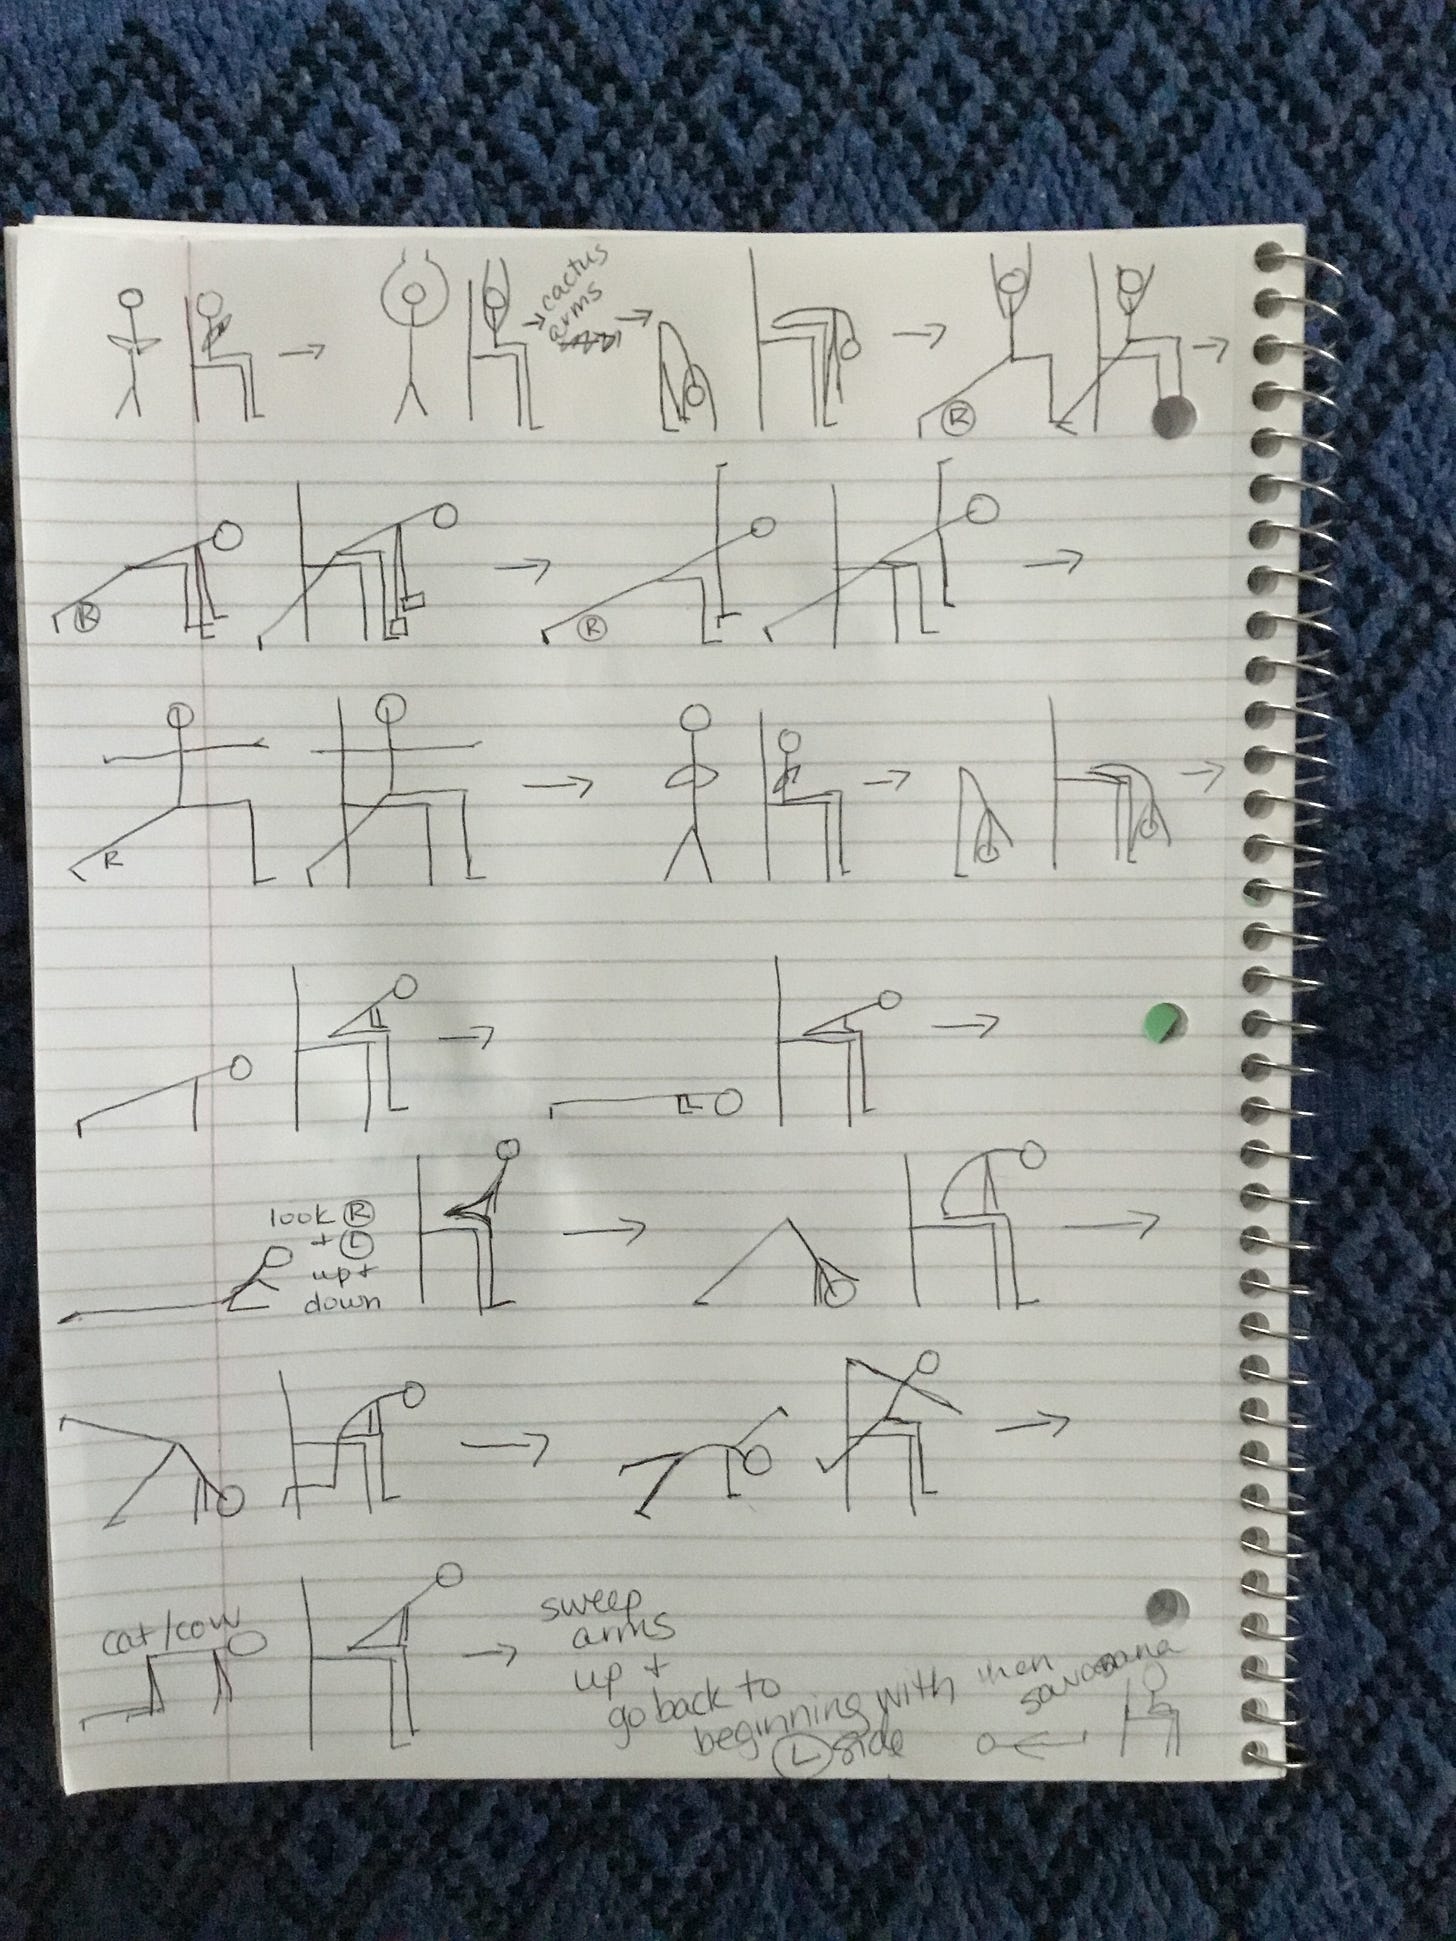 cactus
arms
R
R
R
R
look R
+ L
up +
down
cat/cow
sweep
arms
up +
go back to
beginning with
L side
then
savasana